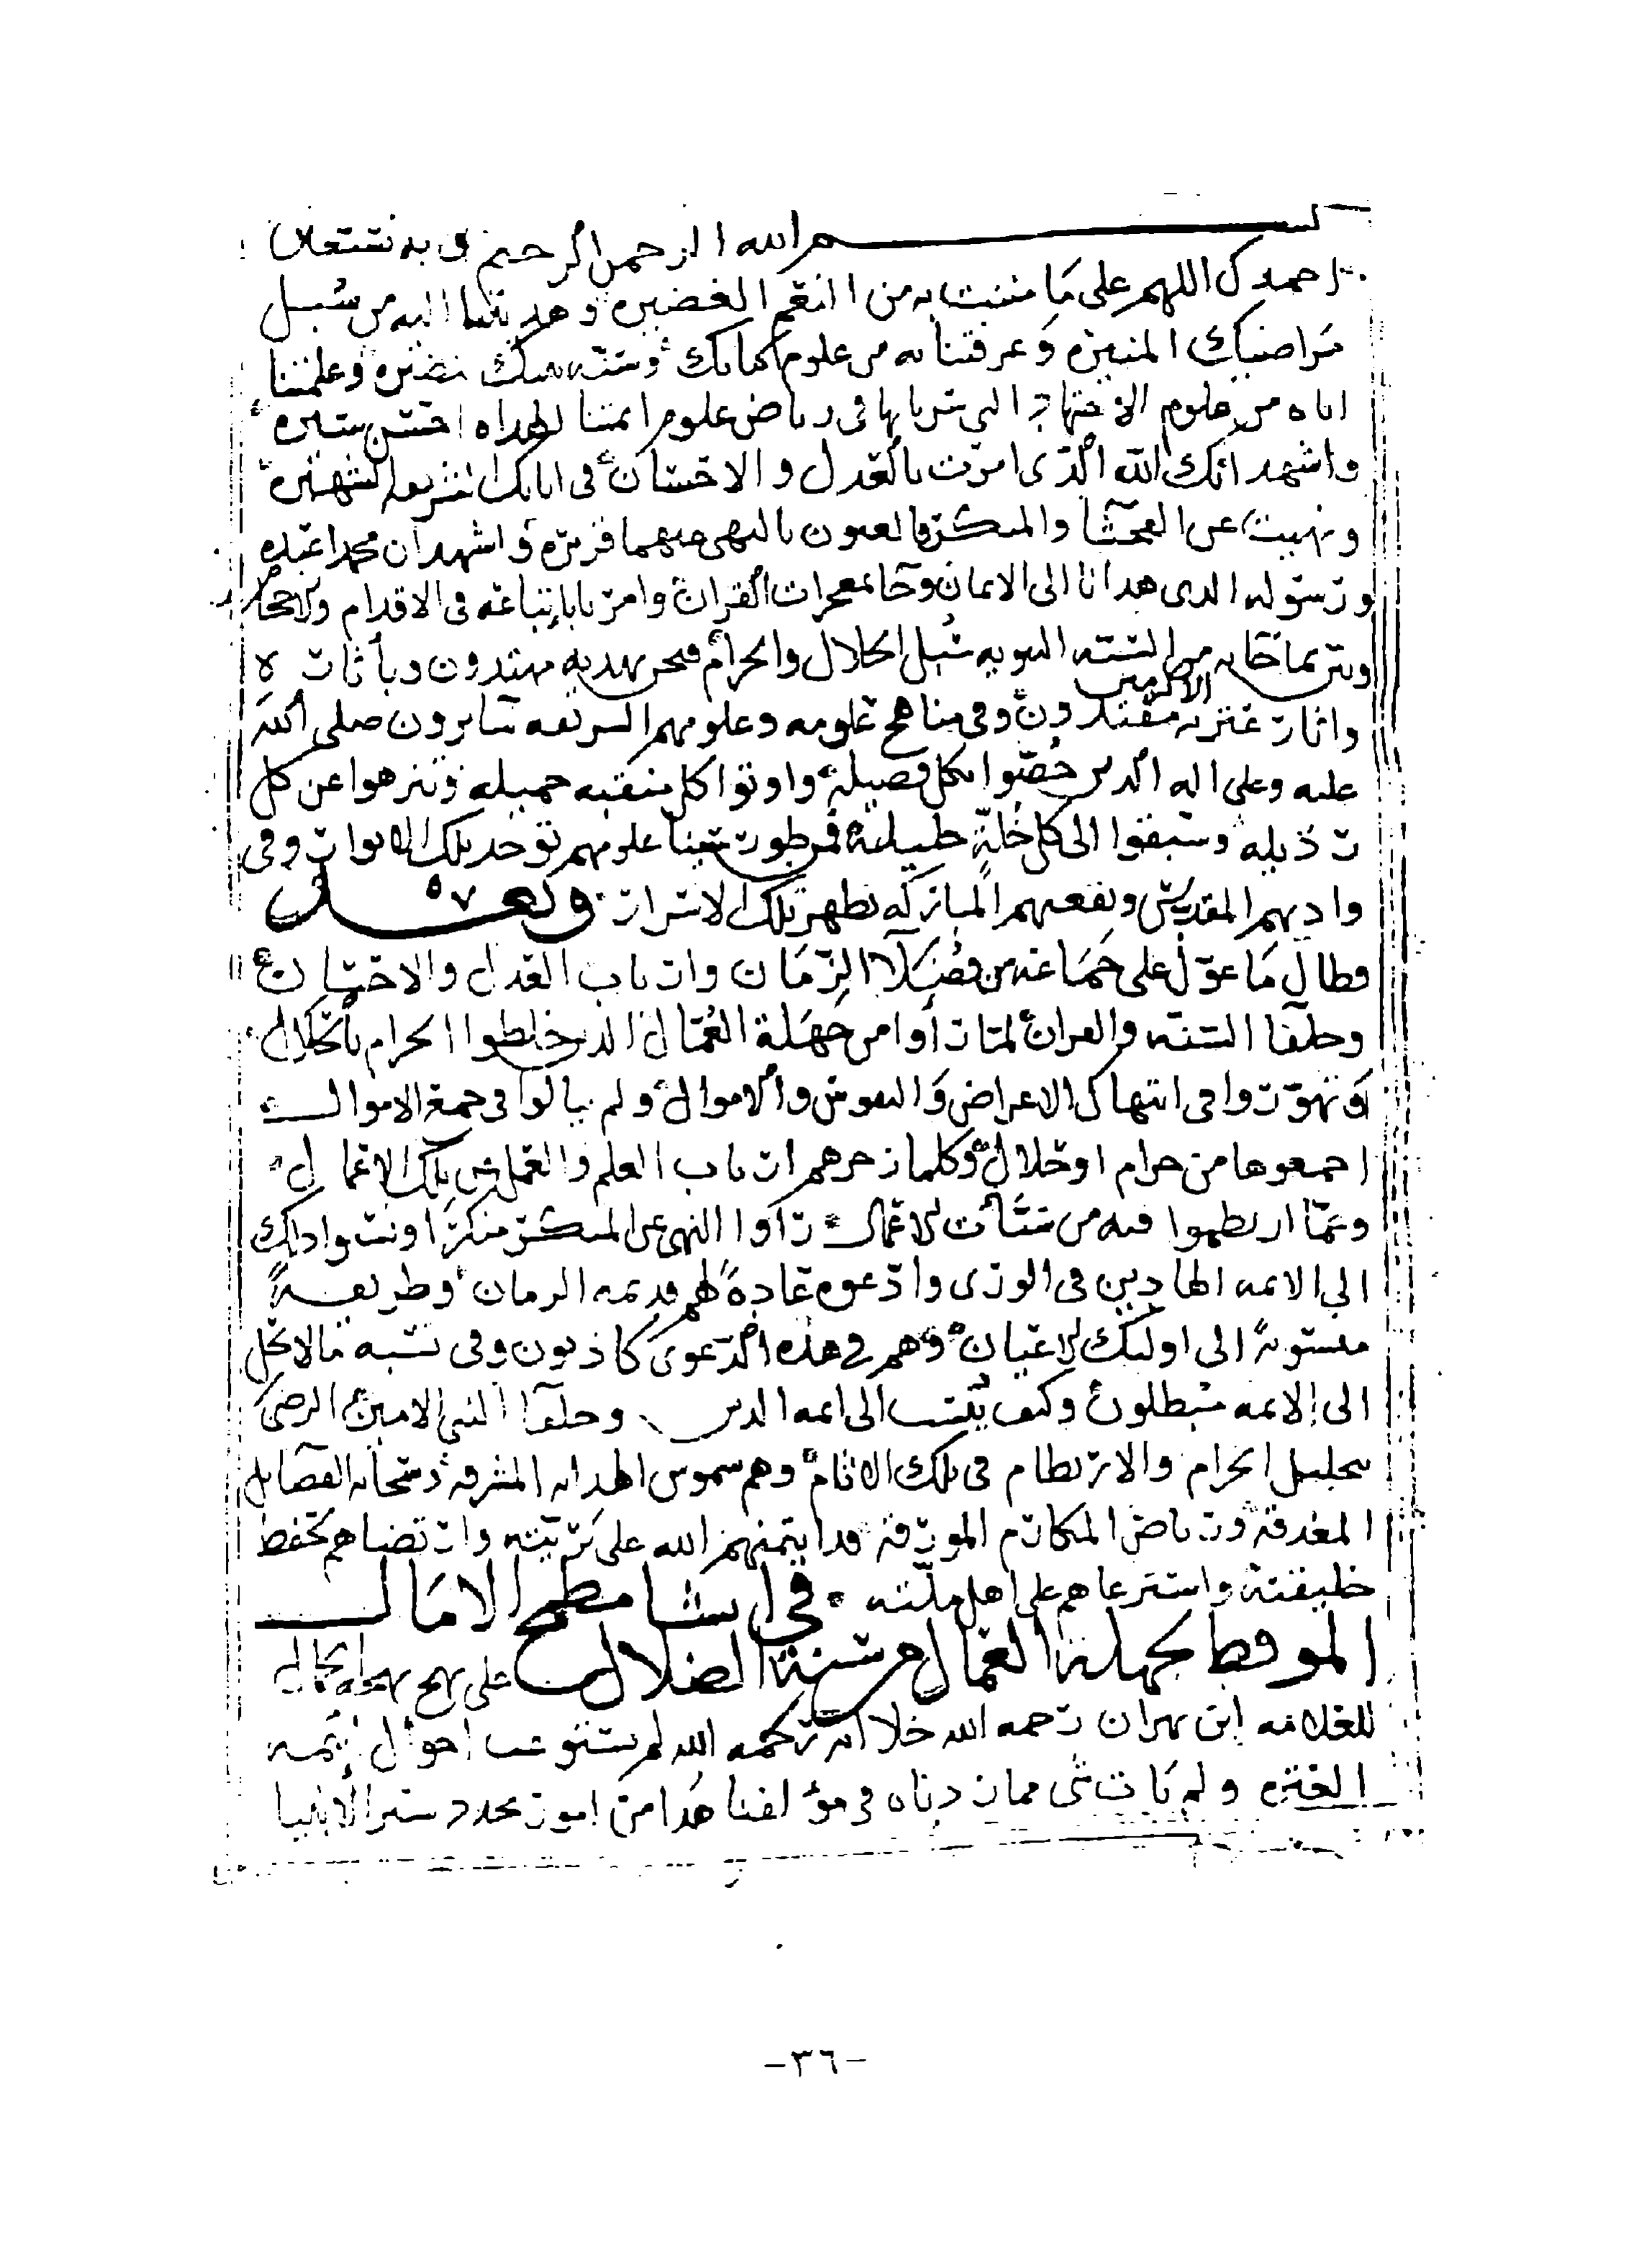 بسم الله الرحمن الرحيم وبه نستعين
احمدك اللهم على ما مننت به من النعم الغضيره وهديتنا اليه من سبل
مراضيك المنيره وعرفتنا به من علوم كتابك وسنه نبيك نضيره وعلمتنا
اياه من علوم الاجتهاد التي سرنا بها في رياض علوم ائمتنا الهداه احسن سيره
واشهد انك الله الذي امرت بالعدل والاحسان في اياتك الشهيره
ونهيت عن الفحشا والمنكر بالنهي عنهما واشهد ان محمدا عبده
ورسوله الدى هدانا الى الايمان وجا بمعجزات القران وامرنا باتباعه في الاقدام والاحجام
وبين بما جا به من السنه النبويه سبل الحلال والحرام فنحن بهديه مهتدون وباثاره
واثار عترته الاكرمين مقتدون وفي مناهج علومه وعلومهم الشريفه سايرون صلى الله
عليه وعلى اله الدين خصوا بكل فضيله واوتوا كل منقبه جميله وتنزهوا عن كل
رذيله وسبقوا الى كل خلة جليله فمن طور سينا علومهم توخد تلك الانوار وفي
واديهم المقدس وبقعتهم المباركه تظهر تلك الاسرار وبعد
فطال ما عول على جماعه من فضلا الزمان وارباب العدل والاحسان
وحلفا السنه والقران لما راوا من جهلة العمال الدين خلطوا الحرام بالحلال
وتهوروا في انتهاك الاعراض والنفوس والاموال ولم يبالوا في جمع الاموال
اجمعوها من حرام او حلال وكلما زجرهم ارباب العلم والعمل عن تلك الاعمال
وعما ارتطموا فيه من سيأت الاعمال راوا النهي عن المنكر منكرا ونسبوا ذلك
الى الائمه الهادين في الورى وادعوه عادة لهم قديمه الزمان وطريقة
منسوبة الى اوليك الاعيان وهم في هذه الدعوى كاذبون وفي نسبه ما لا يحل
الى الائمه مبطلون وكيف ينسب الى ائمه الدين وحلفا النبي الامين الرضى
بتحليل الحرام والارتطام في تلك الاثام وهم شموس الهدايه المشرقه وسحايب الفضايل
المغدقه ورياض المكارم المورقه قد ايتمنهم الله على بريته وارتضاهم لحفظ
خليقته واسترعاهم على اهل ملته في انشا مطمح الامال
الموقظ لجهلة العمال من سنة الضلال على نهج
للعلامه ابن بهران رحمه الله خلا انه رحمه الله لم يستوعب احوال ائمه
العتره ولم يات بشى مما زدناه في مؤلفنا هدا من امور سير الانبيا
-٣٦-